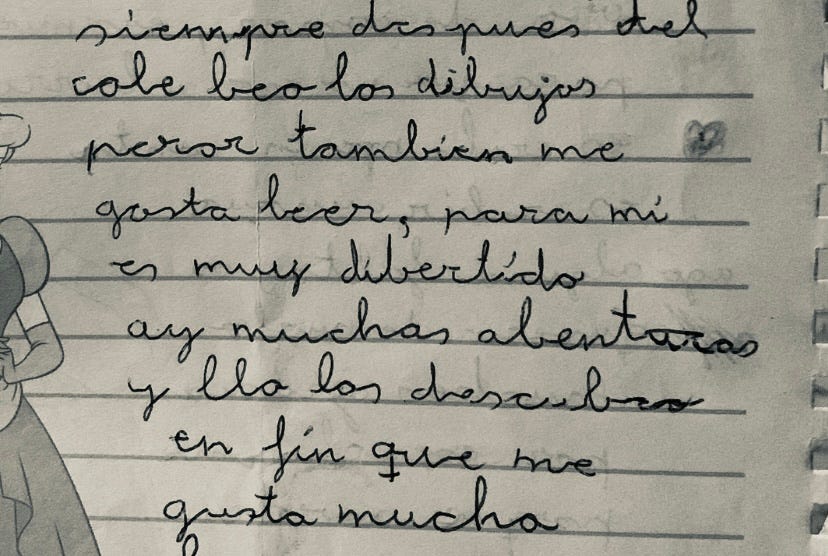 siempre despues del
cole beo los dibujos
peror tambien me
gosta leer, para mi
es muy dibertido
ay muchas abenturas
y llo las descubro
en fin que me
gusta mucho